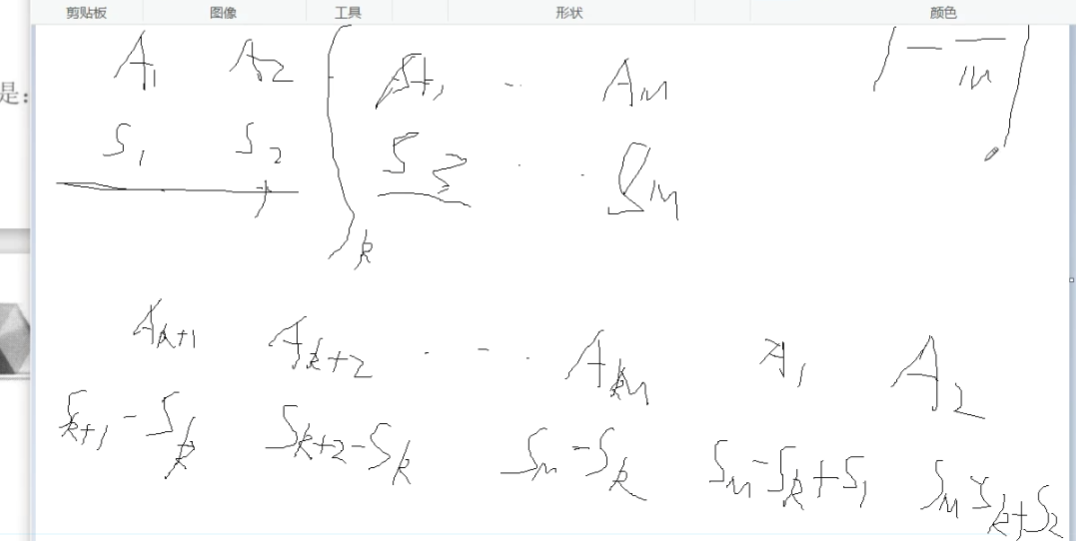 剪贴板 图像 工具 形状 颜色
A₁ A₂ A₁ .. Aₘ
是:
S₁ S₂ S₂ .. Sₘ
k
Aₖ₊₁ Aₖ₊₂ . - . Aₘ A₁ A₂
Sₖ₊₁-Sₖ Sₖ₊₂-Sₖ Sₘ-Sₖ Sₘ-Sₖ+S₁ Sₘ-Sₖ+S₂